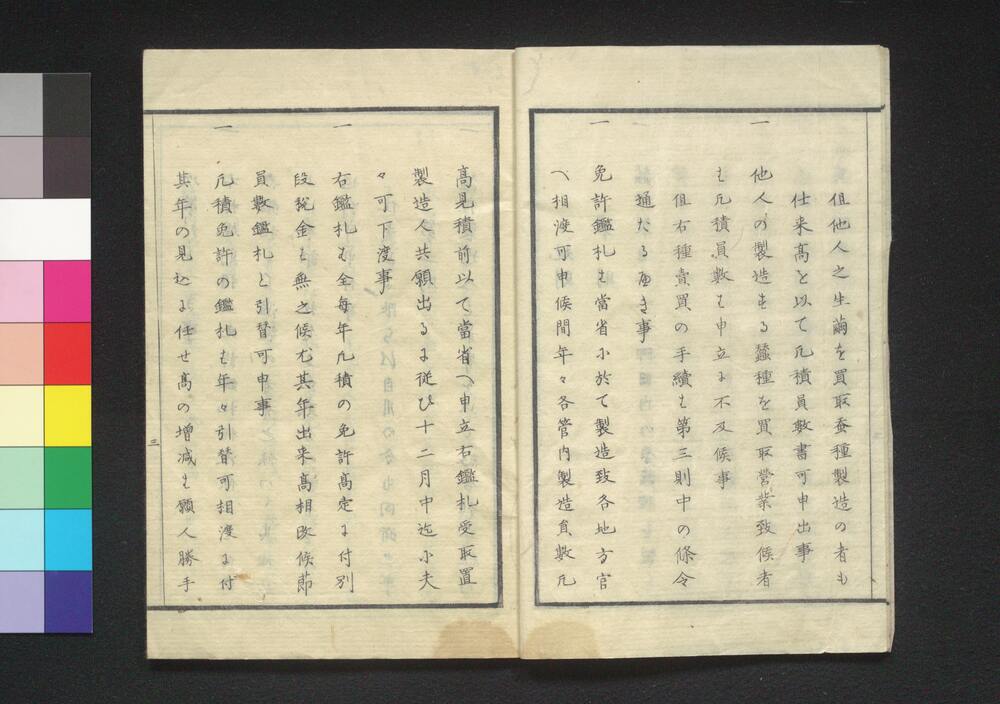 但他人之生繭を買取蚕種製造の者も
仕来高と以て凡積員数書可申出事
一
他人の製造せる蠶種を買取営業致候者
も凡積員数も申立に不及候事
但右種賣買の手續も第三則中の條令
通たるへき事
一
免許鑑札も當省小於て製造致各地方官
へ相渡可申候間年々各管内製造員数凡
高見積前以て當省へ申立右鑑札受取置
製造人共願出るに従ひ十二月中迄小夫
々可下渡事
一
右鑑札も全毎年凡積の免許高定に付別
段税金も無之候尤其年出来高相改候節
員数鑑札と引替可申事
一
凡積免許の鑑札も年々引替可相渡に付
其年の見込に任せ高の増減も願人勝手
三